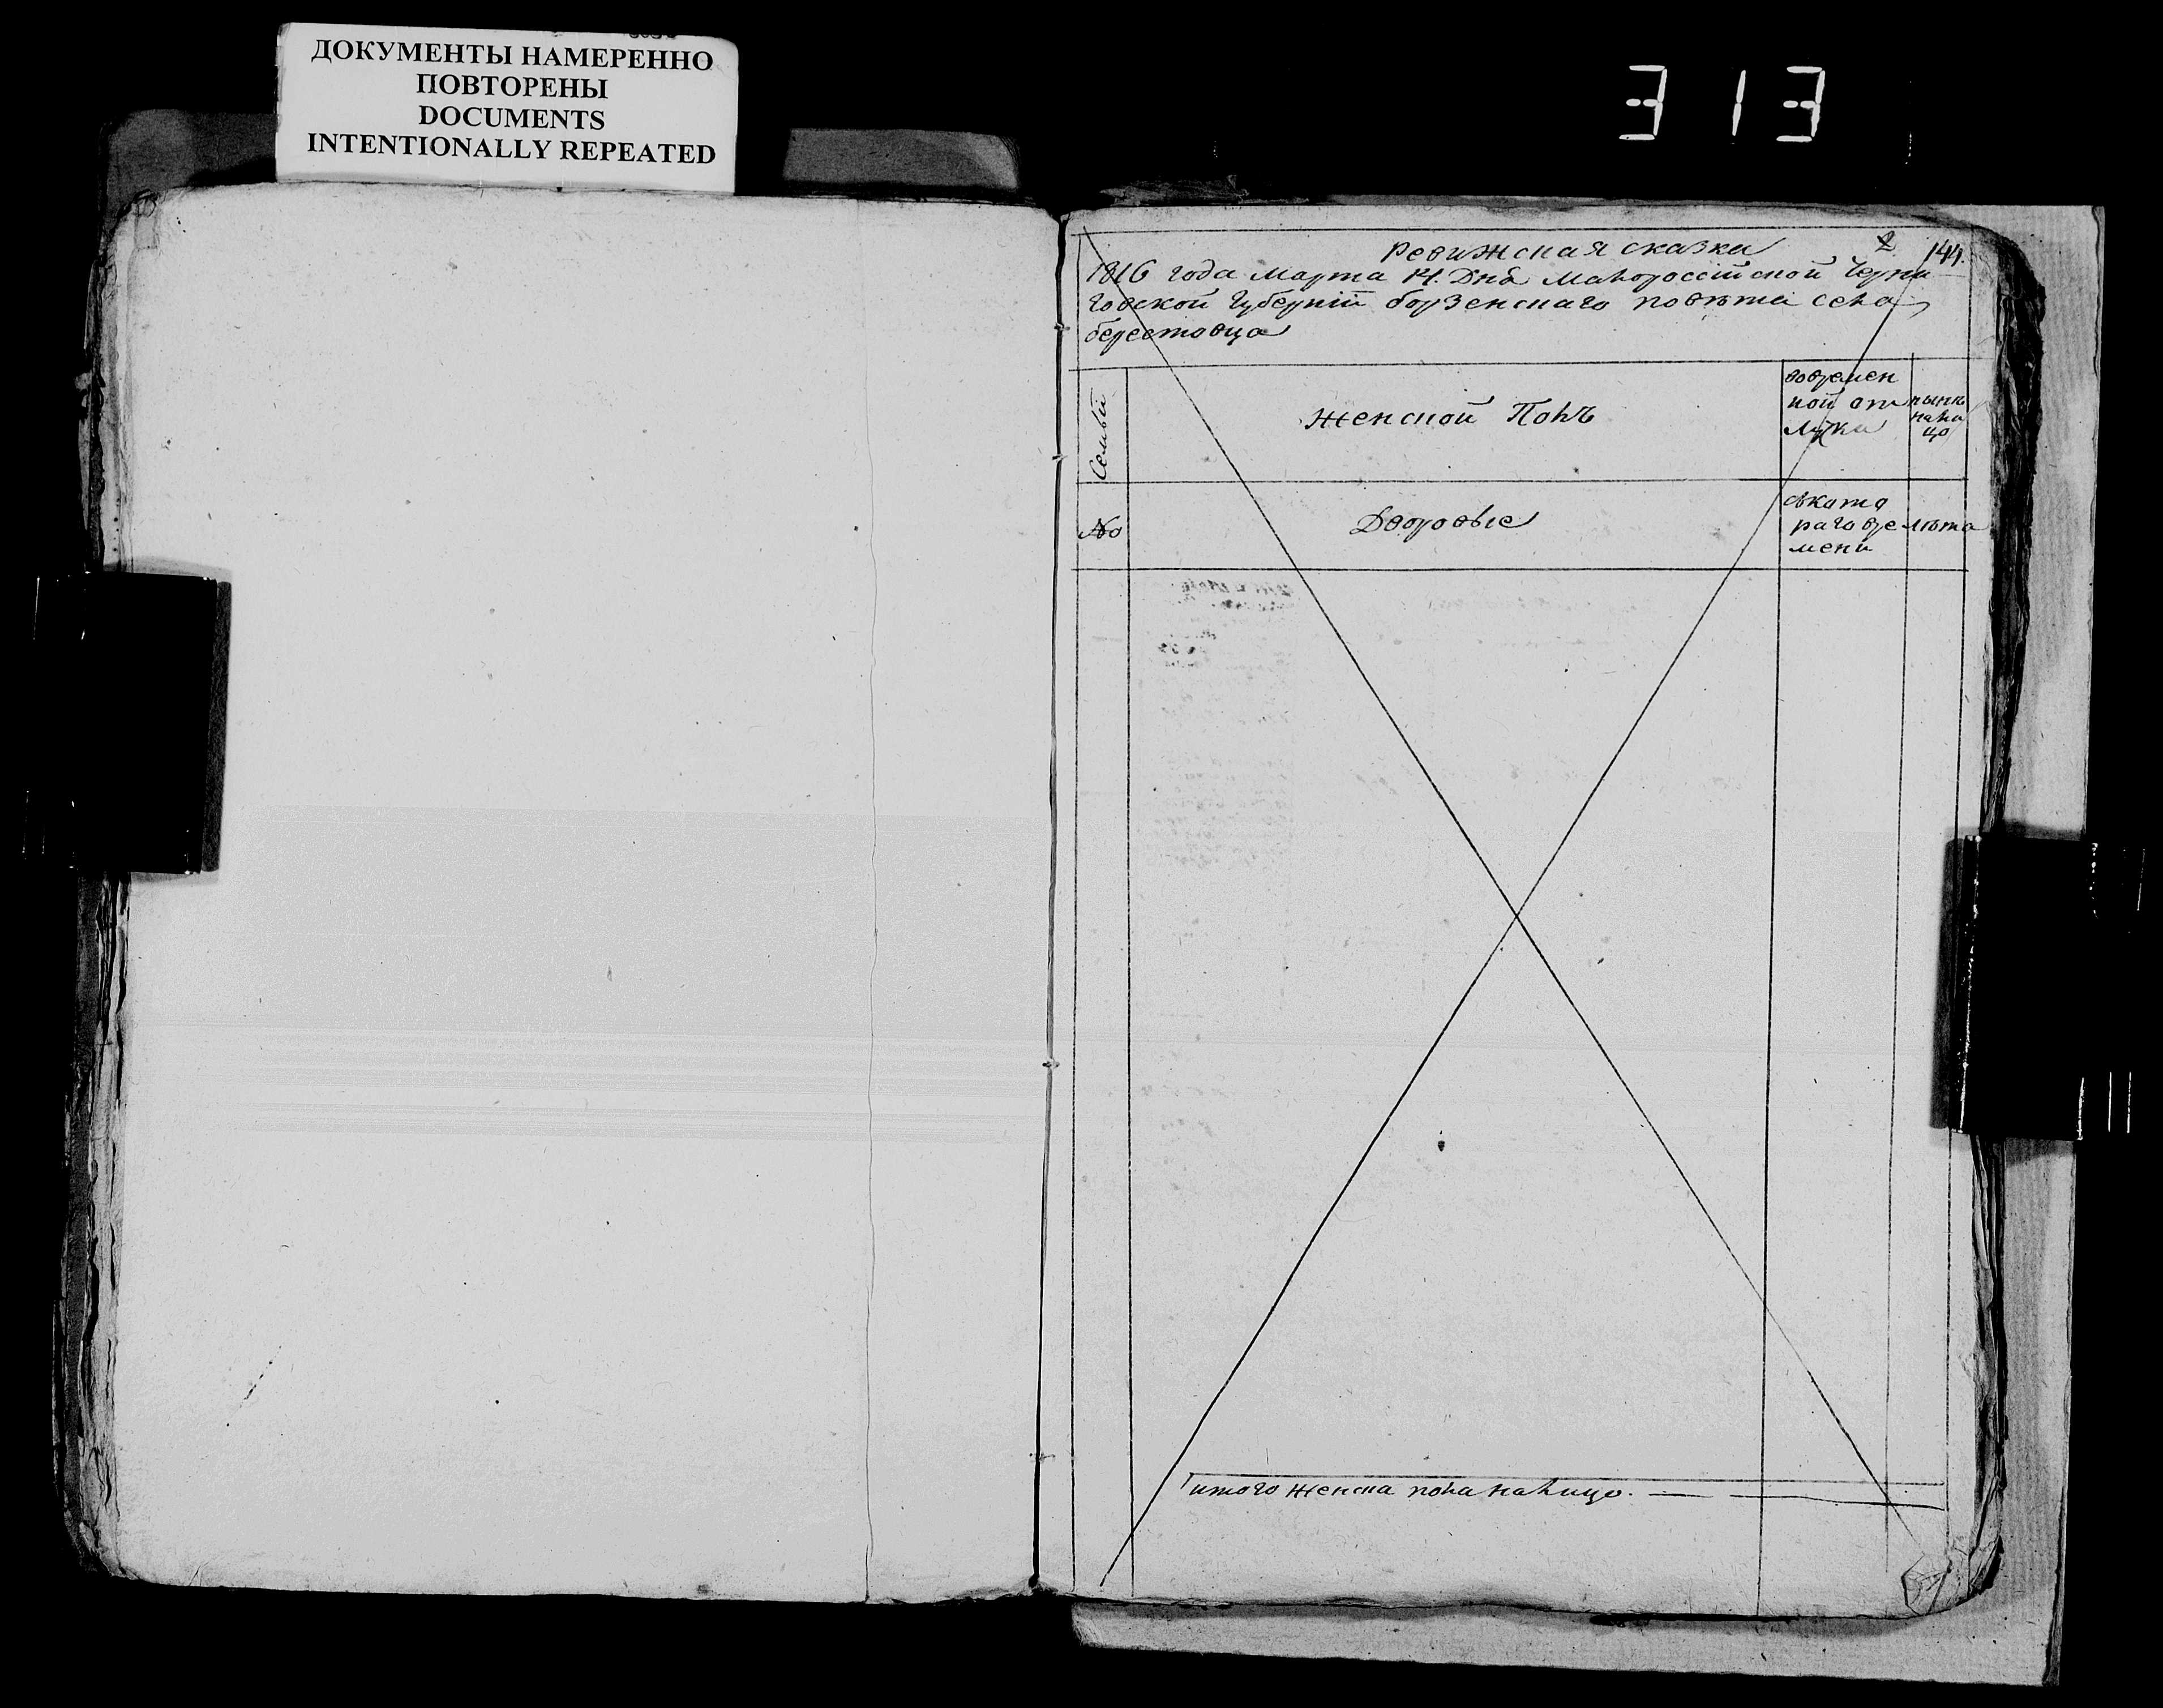 ДОКУМЕНТЫ НАМЕРЕННО
ПОВТОРЕНЫ
DOCUMENTS
INTENTIONALLY REPEATED
313
Ревижская сказка
2
144.
1816 года марта 14. Дня малороссійской Черни
говской Губерніи борзенскаго повѣта села
берестовца
Семьи
женской Полъ
вовремен
ной от
лучки
нынѣ
нали
цо
№
Дворовые
скато
раго вре
мени
лѣта
итого женска пола налицо.